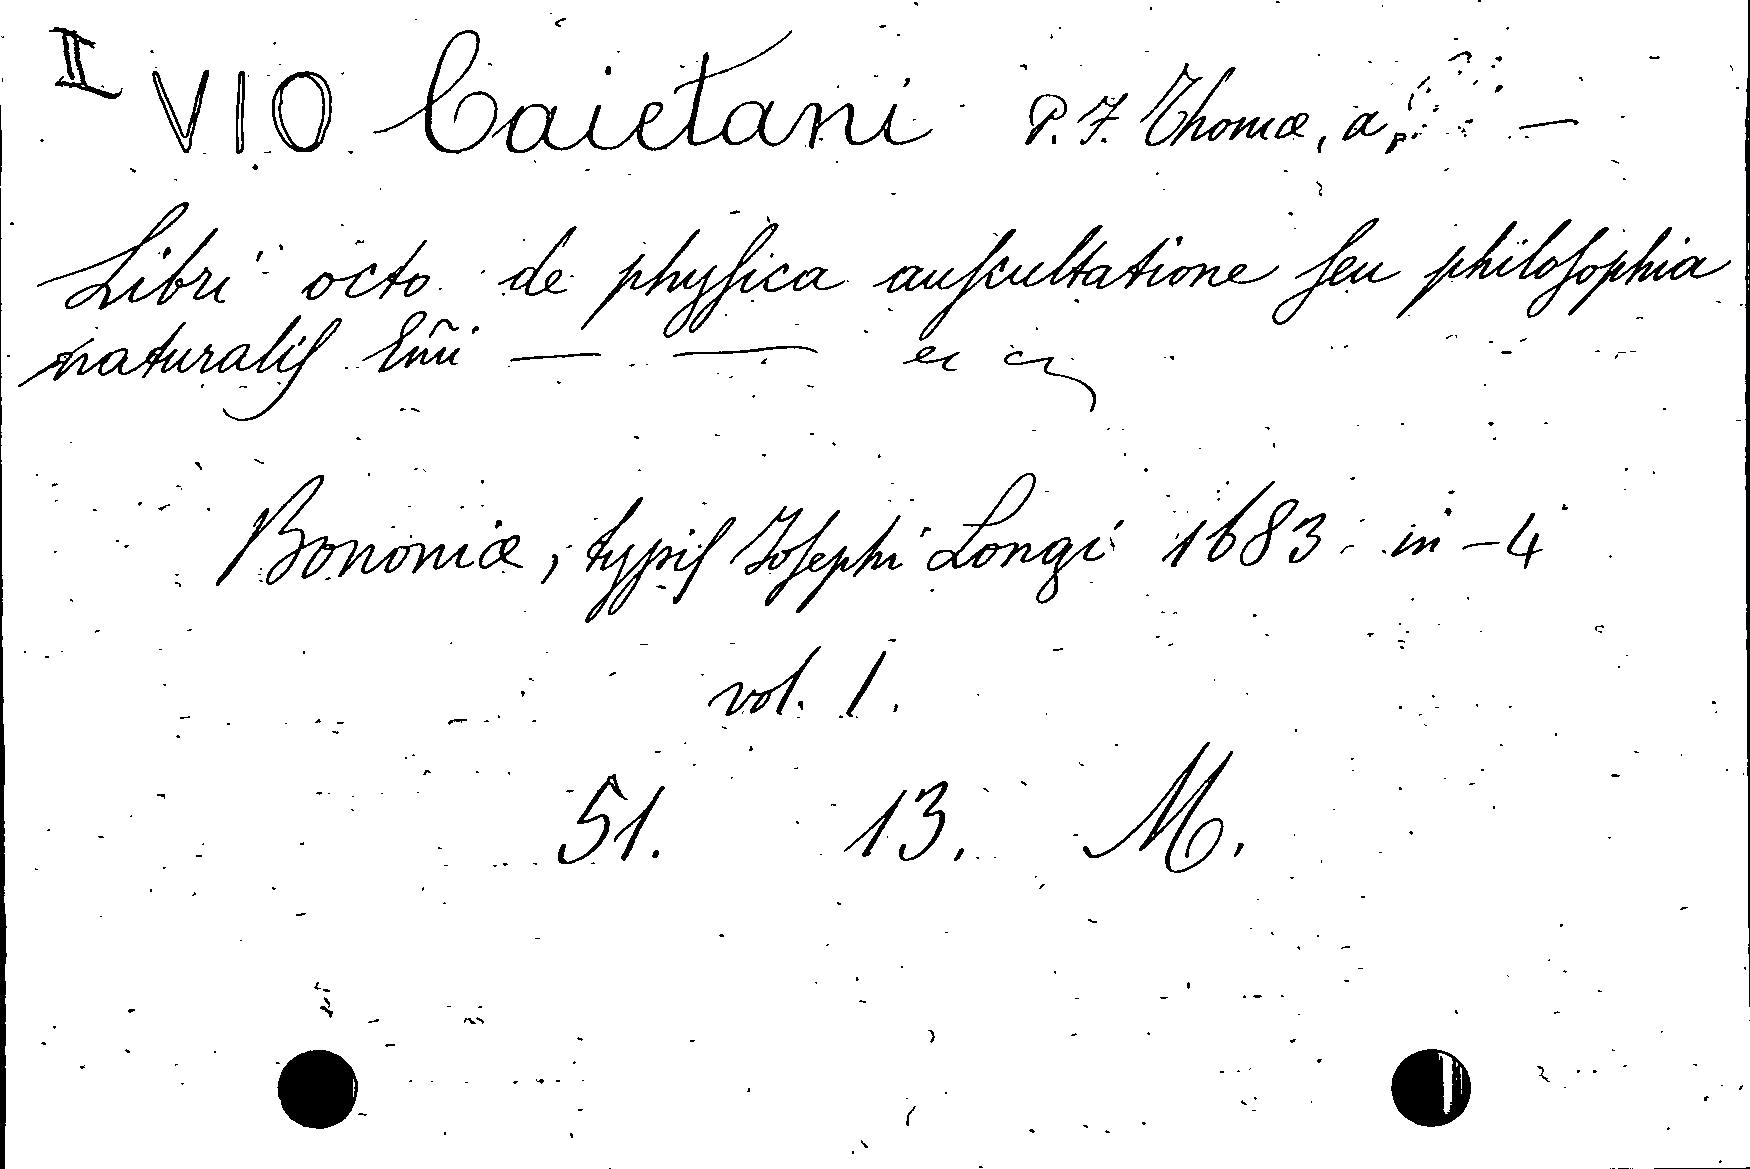 II VIO Caietani P. F. Thomæ, a —
Libri octo de phyſica auſcultatione ſeu philoſophia
naturaliſ Em̃i — —
Bononiæ, typiſ Joſephi Longi 1683 in-4
vol. 1.
51. 13. M.